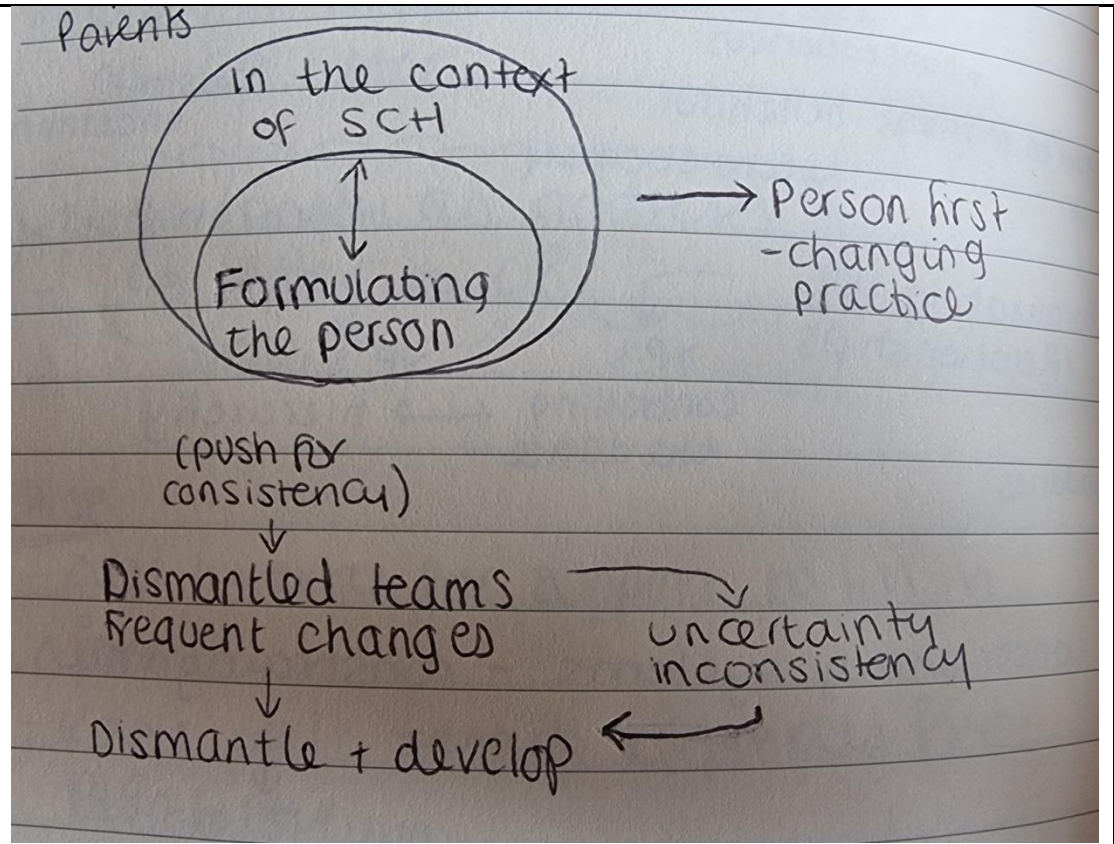 Parents
in the context
of SCH
Formulating
the person
Person first
-changing
practice
(push for
consistency)
Dismantled teams
frequent changes
uncertainty
inconsistency
Dismantle + develop